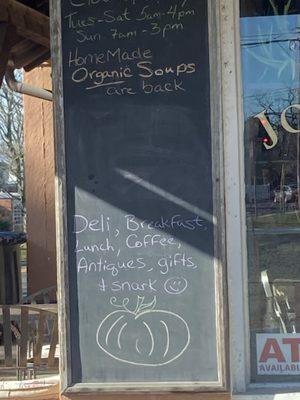 Tues-Sat 5am-4pm
Sun 7am-3pm
HomeMade
Organic Soups
are back
Deli, Breakfast,
Lunch, Coffee,
Antiques, gifts,
+ snark ☺
Jo
AT
AVAILABLE